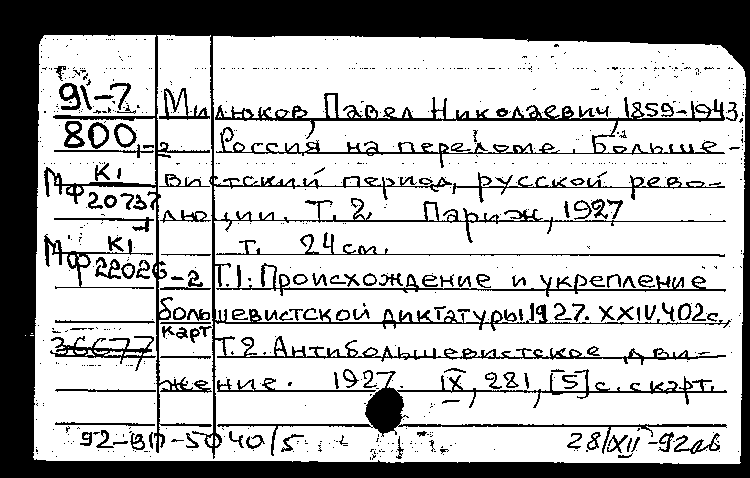 91-7 Милюков, Павел Николаевич, 1859-1943.
800 1-2 Россия на переломе. Больше-
Мф К1 20737 вистский период, русской рево-
-1 люции. Т. 2 Париж, 1927
Мф К1 22026 т. 24 см.
-2 Т.1: Происхождение и укрепление
большевистской диктатуры. 1927. XXIV, 402 с.,
карт
36677 Т. 2. Антибольшевистское дви-
жение. 1927. IX, 281, [5] с. с карт.
92-ВП-5040/5 28/XII-92ав